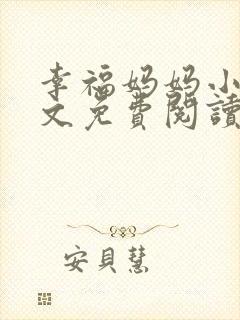 幸福妈妈小
文免費閱讀
安貝慧